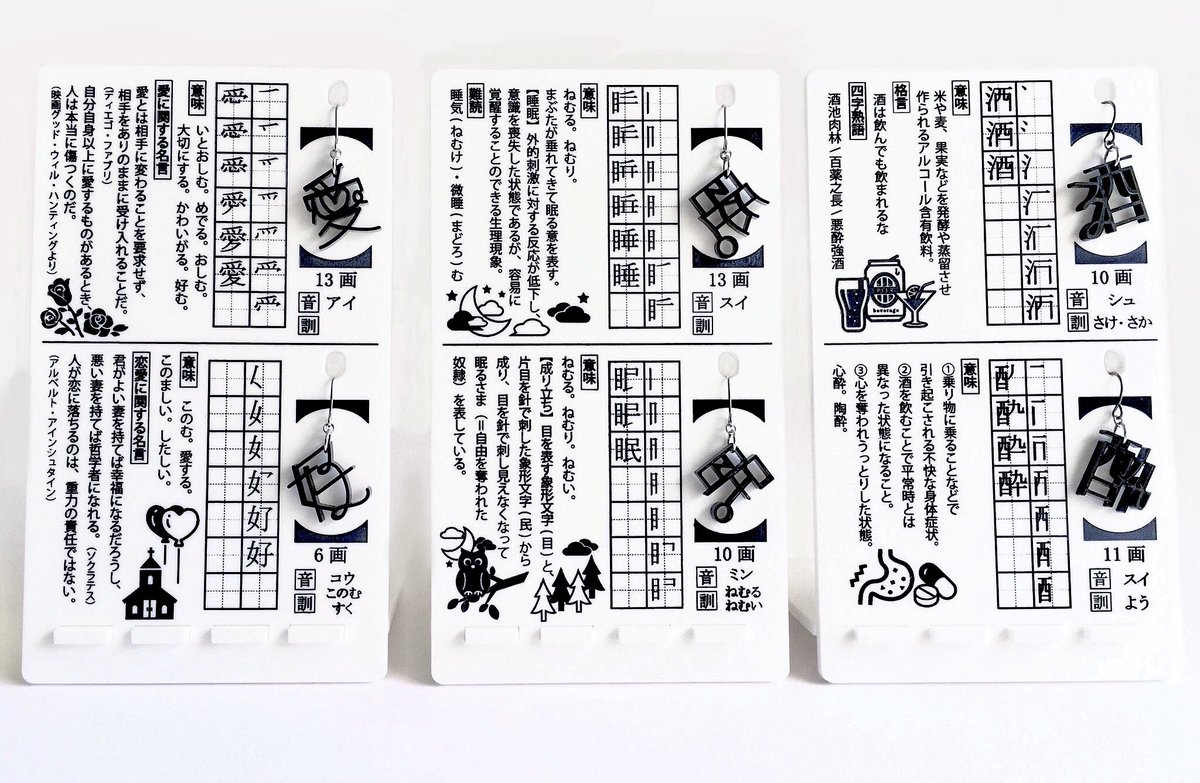 愛
13画
音 アイ
訓
意味
いとおしむ。めでる。おしむ。
大切にする。かわいがる。好む。
愛に関する名言
愛とは相手に変わることを要求せず、
相手をありのままに受け入れることだ。
(ディエゴ・ファブリ)
自分自身以上に愛するものがあるとき、
人は本当に傷つくのだ。
(映画グッド・ウィル・ハンティングより)
好
6画
音 コウ
訓 このむ
すく
意味 このむ。愛する。
このましい。したしい。
恋愛に関する名言
君がよい妻を持てば幸福になるだろうし、
悪い妻を持てば哲学者になれる。(ソクラテス)
人が恋に落ちるのは、重力の責任ではない。
(アルベルト・アインシュタイン)
睡
13画
音 スイ
訓
意味
ねむる。ねむり。
まぶたが垂れてきて眠る意を表す。
【睡眠】外的刺激に対する反応が低下し、
意識を喪失した状態であるが、容易に
覚醒することのできる生理現象。
難読
睡気(ねむけ)・微睡(まどろ)む
眠
10画
音 ミン
訓 ねむる
ねむい
意味
ねむる。ねむり。ねむい。
【成り立ち】目を表す象形文字(目)と、
片目を針で刺した象形文字(民)から
成り、目を針で刺し見えなくなって
眠るさま(=自由を奪われた
奴隷)を表している。
酒
10画
音 シュ
訓 さけ・さか
意味
米や麦、果実などを発酵や蒸留させ
作られるアルコール含有飲料。
格言
酒は飲んでも飲まれるな
四字熟語
酒池肉林/百薬之長/悪酔強酒
BEER
beverage
酔
11画
音 スイ
訓 よう
意味
①乗り物に乗ることなどで
引き起こされる不快な身体症状。
②酒を飲むことで平常時とは
異なった状態になること。
③心を奪われうっとりした状態。
心酔。陶酔。